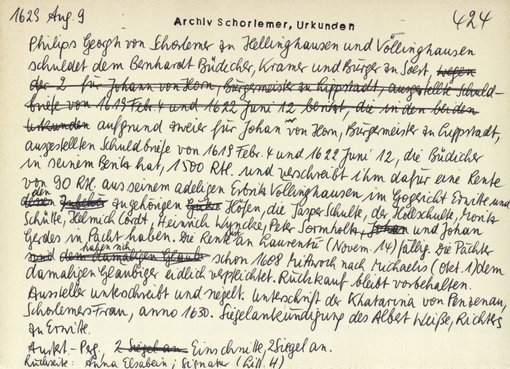 1623 Aug. 9
Archiv Schorlemer, Urkunden
424
Philips Georgh von Schorlemer zu Hellinghausen und Völlinghausen
schuldet dem Bernhardt Büdicher, Kramer und Bürger zu Soest, wegen
der 2 für Johann von Horn, Bürgermeister zu Lippstadt, ausgestellte Schuld-
briefe von 1619 Febr. 4 und 1622 Juni 12 die in den beiden
Urkunden aufgrund zweier für Johan von Horn, Bürgermeister zu Lippstadt,
ausgestellten Schuldbriefe von 1619 Febr. 4 und 1622 Juni 12, die Büdicher
in seinem Besitz hat, 1500 Rtl. und verschreibt ihm dafür eine Rente
von 90 Rtl. aus seinem adeligen Erbsitz Völlinghausen im Gogericht Erwitte und
den angehörigen Höfen, die Jasper Schulte, der Holschulte, Moritz
Schütte, Helmich Cordt, Heinrich Lyncke, Peter Sornholt, Johan und Johan
Gerdes in Pacht haben. Die Rente ist an Laurentii (Novem. 14) fällig. Die Pächter
haben sich dem damaligen Glaub schon 1608 Mittwoch nach Michaelis (Okt. 1) dem
damaligen Gläubiger eidlich verpflichtet. Rückkauf bleibt vorbehalten.
Aussteller unterschreibt und siegelt. Unterschrift der Khatarina von Penzenau,
Schorlemers Frau, anno 1630. Siegelankündigung des Albert Weiße, Richters
zu Erwitte.
Ausf. - Perg., 2 Siegel an Einschnitte, 2 Siegel an.
Rückseite: Anna Elsabein; Signatur (Litt. H)